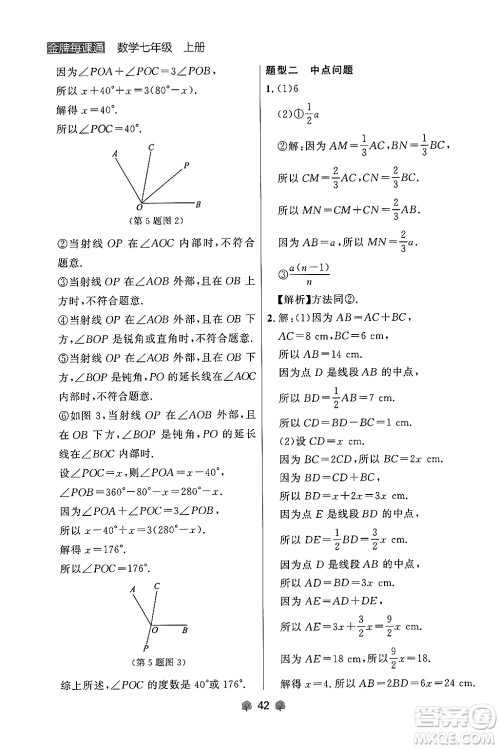 金牌每课通 数学七年级 上册
因为∠POA+∠POC=3∠POB,
所以 x+40°+x=3(90°-x).
解得 x=40°.
所以∠POC=40°.
A
C
P
O
B
(第 5 题图 2)
②当射线 OP 在∠AOC 内部时,不符合
题意.
③当射线 OP 在∠AOB 外部,在 OB 上
方时,不符合题意.
④当射线 OP 在∠AOB 外部,在 OB 下
方,∠BOP 是锐角或直角时,不符合题意.
⑤当射线 OP 在∠AOB 外部,在 OB 下
方,∠BOP 是钝角,P 在 OA 的延长线
内部时,不符合题意.
⑥如图 3,当射线 OP 在∠AOB 外部,在
OB 下方,∠BOP 是钝角,P 在 OA 延长
线外部时,符合题意.
设∠POC=x,则∠POA=x-40°,
∠POB=360°-80°-x=280°-x.
因为∠POA+∠POC=3∠POB,
所以 x-40°+x=3(280°-x).
解得 x=176°.
所以∠POC=176°.
A
C
O
B
P
(第 5 题图 3)
综上所述,∠POC 的度数是 40°或 176°.
题型二 中点问题
1.(1)6
(2)①1/2 a
②解:因为 AM=1/3 AC,BN=1/3 BC,
所以 CM=2/3 AC,CN=2/3 BC.
所以 MN=CM+CN=2/3 a.
③a(n-1)/n
【解析】方法同②.
2.解:(1)因为
AC=8 cm,BC=6 cm,
所以 AB=14 cm.
因为点 D 是线段 AB 的中点,
所以 BD=1/2 AB=7 cm.
所以 CD=BD-BC=1 cm.
(2)设 CD=x cm.
因为 BC=2CD=2x cm,
因为 BD=BC+CD,
所以 BD=x+2x=3x cm.
所以 DE=1/2 BD=3/2 x cm.
因为点 D 是线段 AB 的中点,
所以 AD=BD=3x cm.
因为 AE=AD+DE,
所以 AE=3x+3/2 x=9/2 x cm.
因为 AE=18 cm,所以 9/2 x=18.
解得 x=4. 所以 CD=4 cm.
42